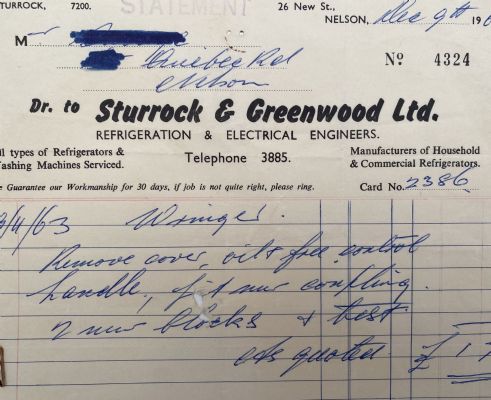 STURROCK, 7200. STATEMENT 26 New St.,
NELSON, Dec 9th 196
M
Quebec Rd
Nelson
Nº 4324
Dr. to Sturrock & Greenwood Ltd.
REFRIGERATION & ELECTRICAL ENGINEERS.
ll types of Refrigerators &
ashing Machines Serviced.
Telephone 3885.
Manufacturers of Household
& Commercial Refrigerators.
e Guarantee our Workmanship for 30 days, if job is not quite right, please ring.
Card No. 2386
/4/63 Wringer.
Remove cover, oil & free control
handle, fit new coupling.
2 new blocks & test
As quoted £ 17